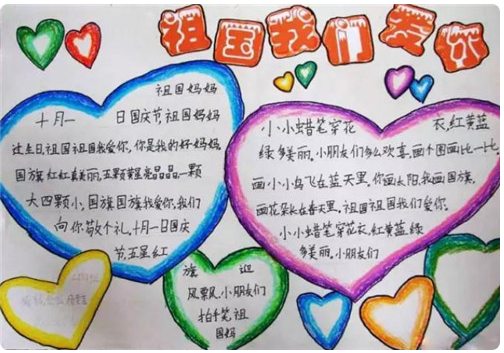 祖国我们爱你
祖国妈妈
十月一日国庆节,祖国妈妈
过生日祖国祖国我爱你,你是我的好妈妈
国旗红红真美丽,五颗黄星亮晶晶一颗
大四颗小,国旗国旗我爱你,我们
向你敬个礼,十月一日国庆
节,五星红
旗迎
风飘,小朋友们
拍手笑祖
国妈
小小蜡笔穿花衣,红黄蓝
绿多美丽,小朋友们多么欢喜,画个图画比一比,
画小小鸟飞在蓝天里,你画太阳,我画国旗,
画花朵长在春天里,祖国祖国我们爱你,
小小蜡笔穿花衣,红黄蓝绿
多美丽,小朋友们